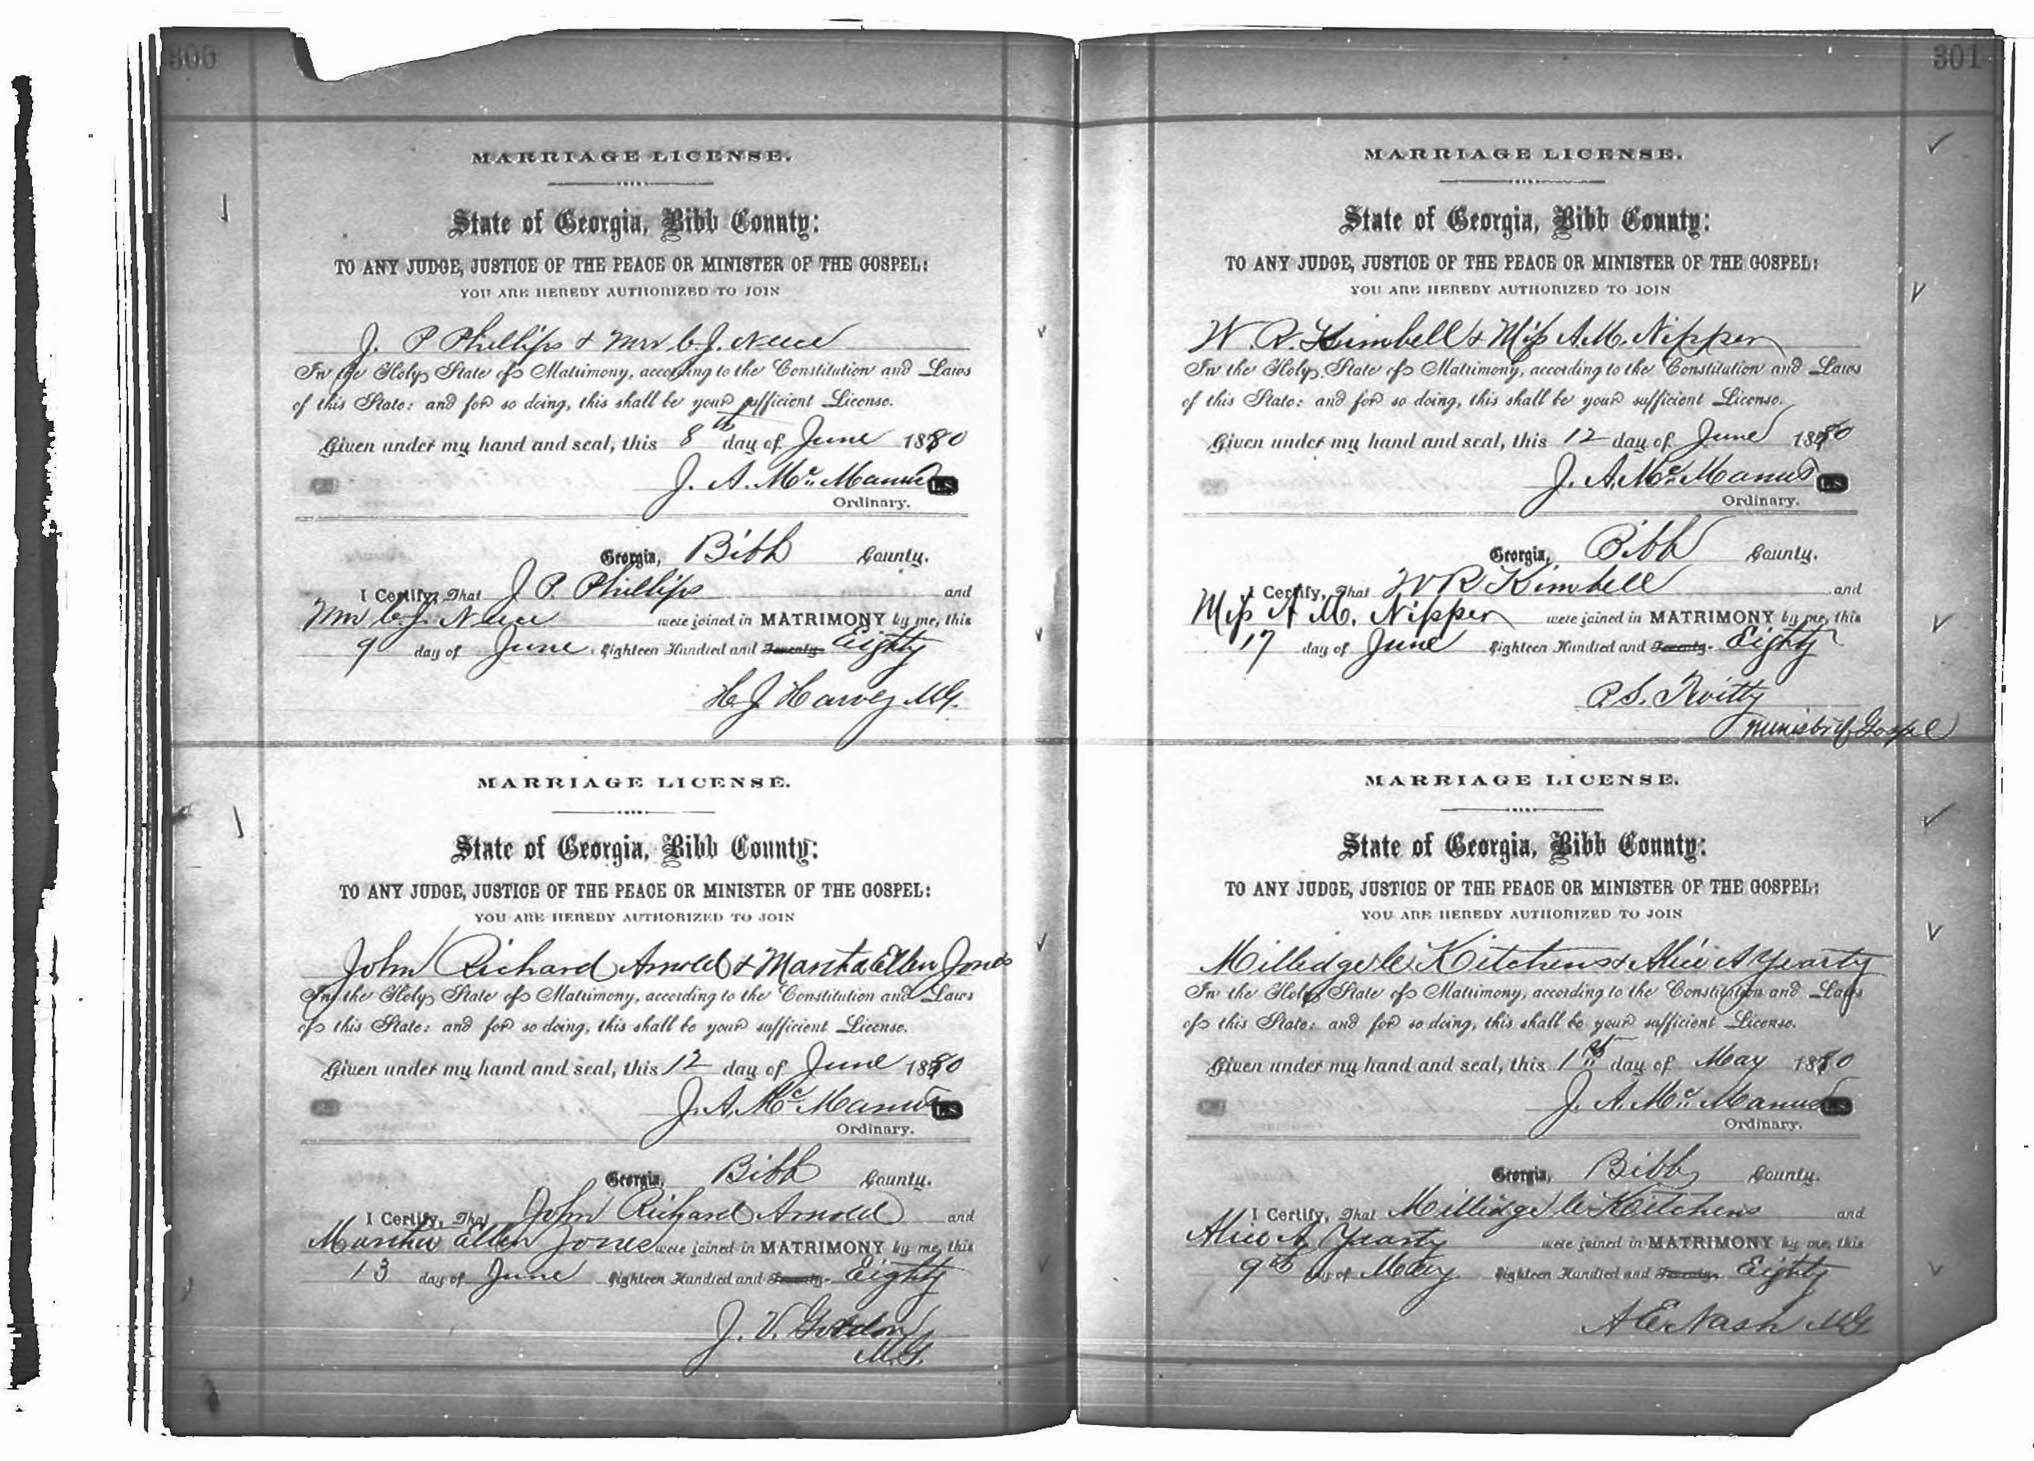 300
MARRIAGE LICENSE.
State of Georgia, Bibb County:
TO ANY JUDGE, JUSTICE OF THE PEACE OR MINISTER OF THE GOSPEL:
YOU ARE HEREBY AUTHORIZED TO JOIN
J. P Phillips & Mrs C. J.
In the Holy State of Matrimony, according to the Constitution and Laws
of this State: and for so doing, this shall be your sufficient License.
Given under my hand and seal, this 8th day of June 1880
J. A. McManus L.S
Ordinary.
Georgia, Bibb County.
I Certify, That J P. Phillips and
Mrs C. J. were joined in MATRIMONY by me, this
9 day of June Eighteen Hundred and Seventy- Eighty
H J Harvey M.G.
MARRIAGE LICENSE.
State of Georgia, Bibb County:
TO ANY JUDGE, JUSTICE OF THE PEACE OR MINISTER OF THE GOSPEL:
YOU ARE HEREBY AUTHORIZED TO JOIN
John Richard Arnold & Martha Ellen Jones
In the Holy State of Matrimony, according to the Constitution and Laws
of this State: and for so doing, this shall be your sufficient License.
Given under my hand and seal, this 12 day of June 1880
J. A. McManus L.S
Ordinary.
Georgia, Bibb County.
I Certify, That John Richard Arnold and
Martha Ellen Jones were joined in MATRIMONY by me, this
13 day of June Eighteen Hundred and Seventy- Eighty
J. V. Gordon
M.G.
301
MARRIAGE LICENSE.
State of Georgia, Bibb County:
TO ANY JUDGE, JUSTICE OF THE PEACE OR MINISTER OF THE GOSPEL:
YOU ARE HEREBY AUTHORIZED TO JOIN
W R. Kimbell & Miss A. M. Nipper
In the Holy State of Matrimony, according to the Constitution and Laws
of this State: and for so doing, this shall be your sufficient License.
Given under my hand and seal, this 12 day of June 1880
J. A. McManus L.S
Ordinary.
Georgia, Bibb County.
I Certify, That W R Kimbell and
Miss A M. Nipper were joined in MATRIMONY by me, this
17 day of June Eighteen Hundred and Seventy- Eighty
P. S. Twitty
Minister of Gospel
MARRIAGE LICENSE.
State of Georgia, Bibb County:
TO ANY JUDGE, JUSTICE OF THE PEACE OR MINISTER OF THE GOSPEL:
YOU ARE HEREBY AUTHORIZED TO JOIN
Milledge C Kitchens & Alice A Yearty
In the Holy State of Matrimony, according to the Constitution and Laws
of this State: and for so doing, this shall be your sufficient License.
Given under my hand and seal, this 1st day of May 1880
J. A. McManus L.S
Ordinary.
Georgia, Bibb County.
I Certify, That Milledge C Kitchens and
Alice A Yearty were joined in MATRIMONY by me, this
9th day of May Eighteen Hundred and Seventy- Eighty
A E Nash M.G.